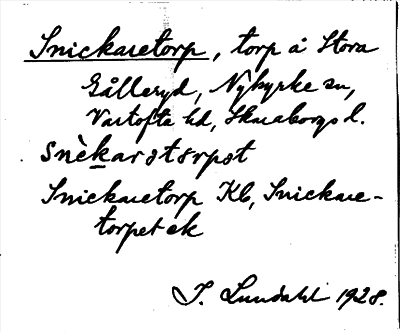 Snickaretorp, torp å Stora
Gålleryd, Nykyrke sn,
Vartofta hd, Skaraborgs l.
snèkarətɷrpət
Snickaretorp Kb, Snickare-
torpet ek
J. Lundahl 1928.